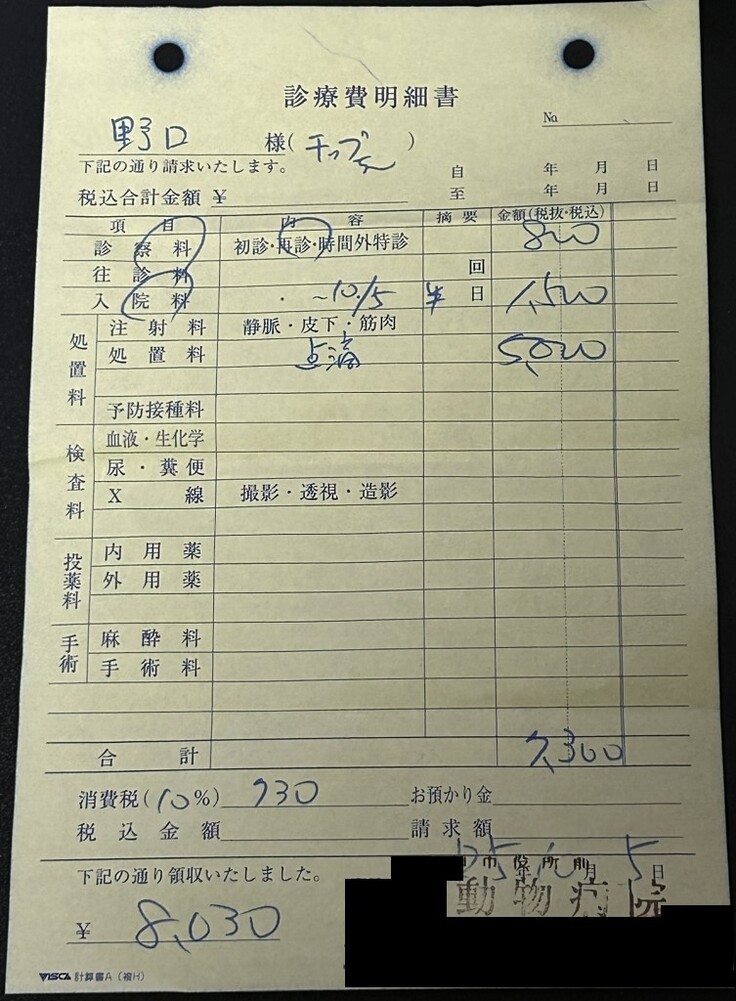 診療費明細書
No
野口 様(チップちゃん)
下記の通り請求いたします。
自 年 月 日
税込合計金額 ¥
至 年 月 日
項目 内容 摘要 金額(税抜・税込)
診察料 初診・再診・時間外特診 800
往診料 回
入院料 ・ ~10/5 半日 1,500
処置料
注射料 静脈・皮下・筋肉
処置料 点滴 5,000
予防接種料
検査料
血液・生化学
尿・糞便
X線 撮影・透視・造影
投薬料
内用薬
外用薬
手術
麻酔料
手術料
合計 7,300
消費税(10%) 730 お預かり金
税込金額 請求額
市役所前
月 5日
下記の通り領収いたしました。
動物病院
¥ 8,030
VISCA 計算書A(複H)